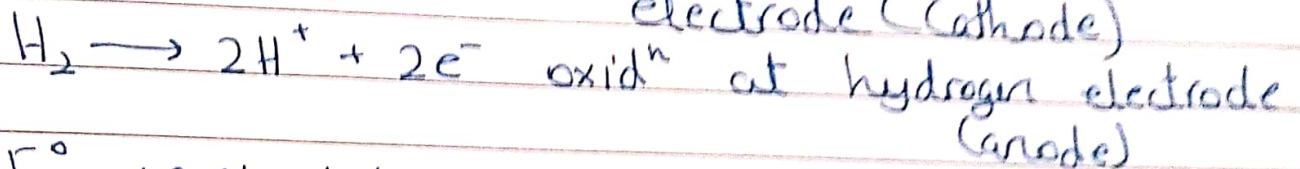 electrode (Cathode)
H₂ ⟶ 2H⁺ + 2e⁻ oxidⁿ at hydrogen electrode
(anode)